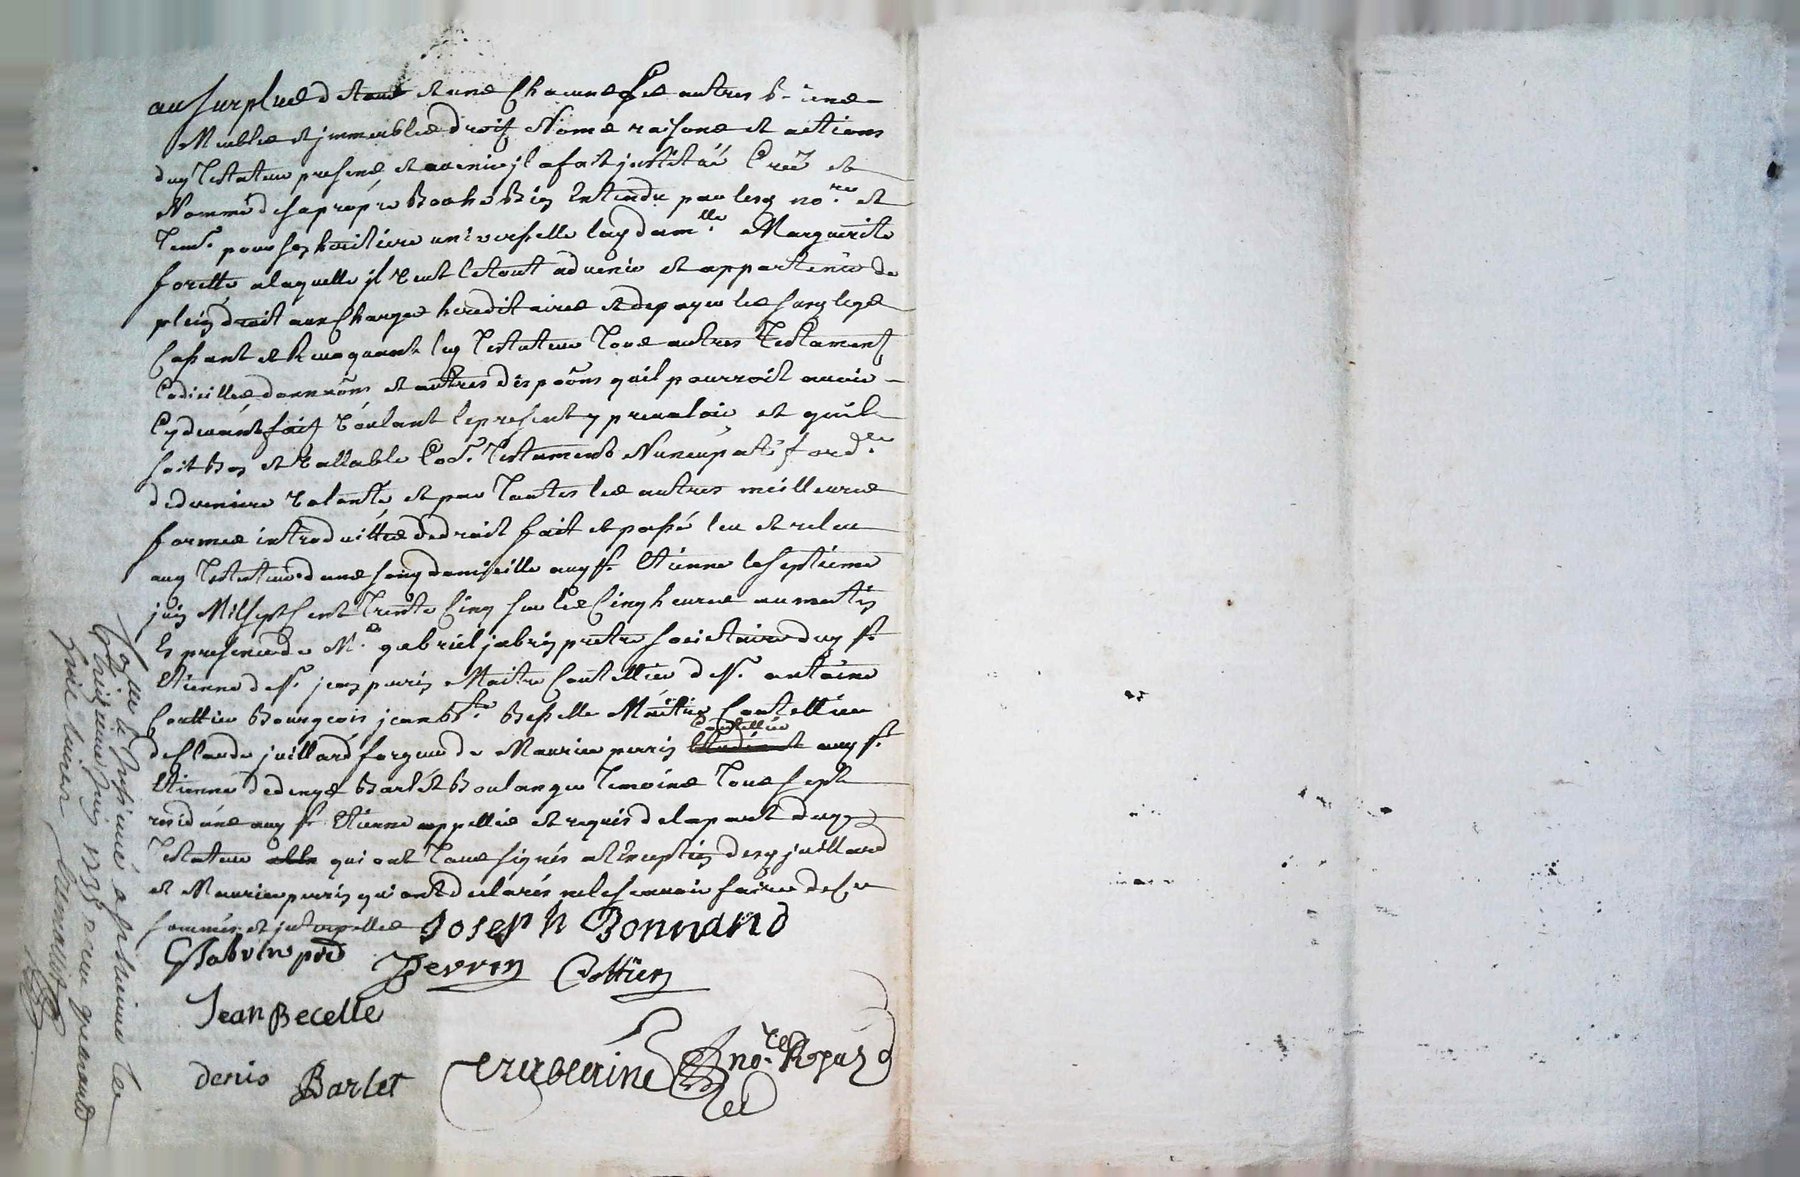 au surplus de tous et uns Chacuns ses autres biens
Meubles et jmmeubles droitz Noms raisons et actions
dud Testateur presens et avenir jl a fait jnstitué Creé et
Nommé de sa propre Bouche Bien Entendu par lesd no.re et
Tem.s pour son heritiere universselle lad dam.lle Marguerite
forette a laquelle jl veut le tout advenir et appartenir de
plein droit aux Charges hereditaires et de payer les susd legs
Cassant et Revoquant led Testateur Tous autres Testaments
Codicilles donnaõns et autres dispoõns quil pourroit avoir
Cydevant fait Voulant le present y prevaloir et quil
soit bon et Vallable Testament Nuncupatif
de derniere Volonté et par Toutes les autres meilleures
formes introduittes de droit fait et passé leu et releu
aud Testateur dans son domiscille aud St Etienne le septieme
juin Mil sept Cent Trente Cinq sur les Cinq heures au matin
En presence de M.e gabriel jabrin pretre societaire dud St
Etienne de Sr jean perrin Maitre Coutellier de Sr antoine
Cottier Bourgeois jean Bte Besselle Maitre Coutellier
de Claude juillard forgeur de Maurice perrin Coutellier aud St
Etienne de denys Barlet Boulanger Temoins Tous sept
residans aud St Etienne appellés et requis de la part dud
Testateur qui ont Tous signés a l'exception desd juillard
et Maurice perrin qui ont declarés ne le scavoir faire de Ce
sommés et jnterpellés Joseph Bonnand
G Jabrin ptre Perrin Cottier
Jean Becelle
denis Barlet no.re Royal
Etienne juin 1735 receu quarante
huit livres